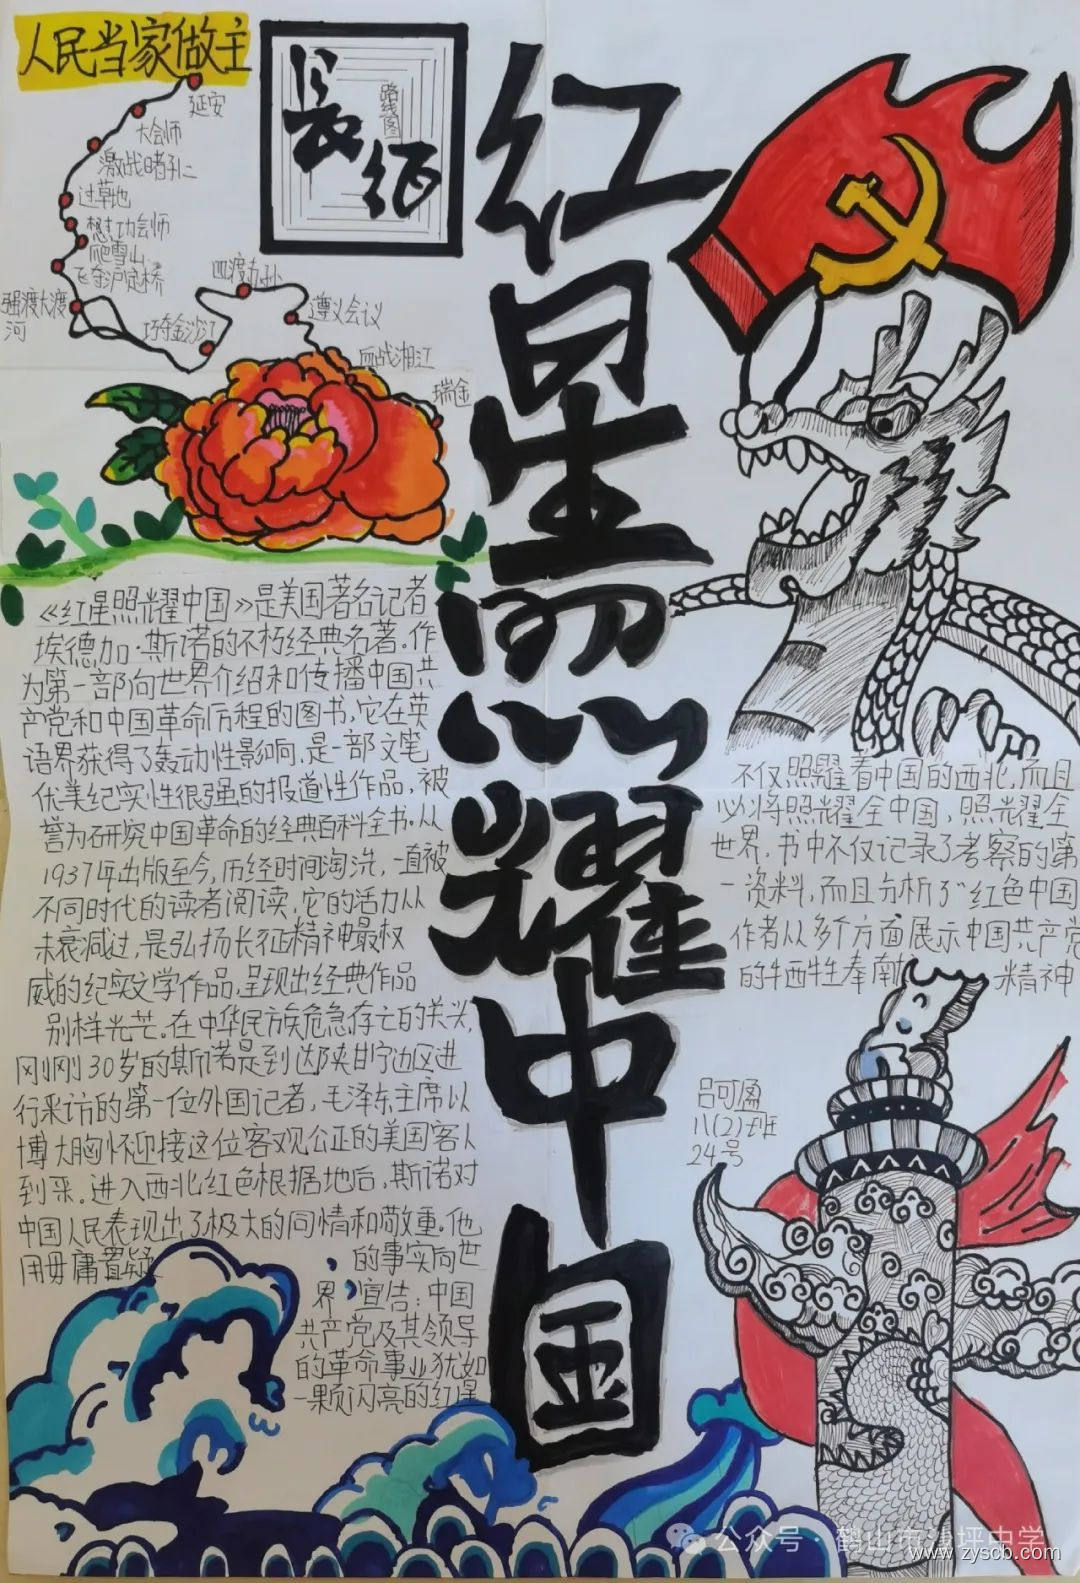 人民当家做主
延安
大会师
激战嘟
过草地
懋功会师
爬雪山
飞夺泸定桥
强渡大渡
河
巧夺金沙江
四渡赤水
遵义会议
血战湘江
瑞金
長征
路线图
红星照耀中国
《红星照耀中国》是美国著名记者
埃德加·斯诺的不朽经典名著。作
为第一部向世界介绍和传播中国共
产党和中国革命历程的图书,它在英
语界获得了轰动性影响,是一部文笔
优美纪实性很强的报道性作品,被
誉为研究中国革命的经典百科全书。从
1937年出版至今,历经时间淘洗,一直被
不同时代的读者阅读,它的活力从
未衰减过,是弘扬长征精神最权
威的纪实文学作品,呈现出经典作品
别样光芒。在中华民族危急存亡的关头,
刚刚30岁的斯诺是到达陕甘宁边区进
行采访的第一位外国记者,毛泽东主席以
博大胸怀迎接这位客观公正的美国客人
到来。进入西北红色根据地后,斯诺对
中国人民表现出了极大的同情和敬重。他
用毋庸置疑
的事实向世
界宣告:中国
共产党及其领导
的革命事业犹如
一颗闪亮的红星
不仅照耀着中国的西北,而且
必将照光耀全中国,照光耀全
世界。书中不仅记录了考察的第
一资料,而且分析了"红色中国
作者从多个方面展示中国共产党
的牺牲奉献 精神
吕可盈
八(2)班
24号
公众号·鹤山市沙坪中学
www.zyscb.com